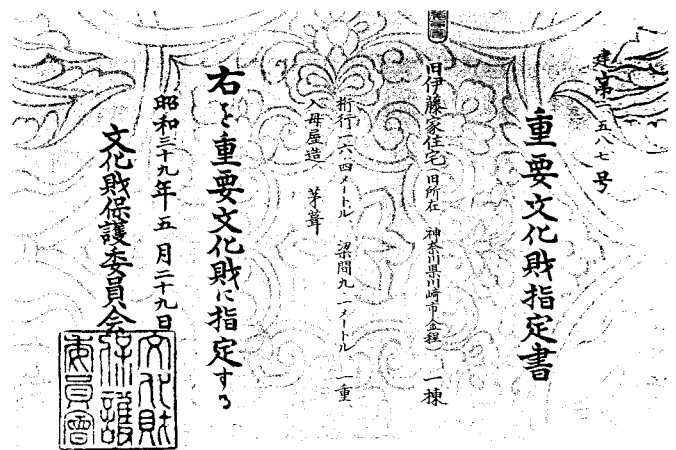 建第一五八七号
重要文化財指定書
旧伊藤家住宅(旧所在 神奈川県川崎市金程) 一棟
桁行一六・四メートル 梁間九・一メートル 一重
入母屋造 茅葺
右を重要文化財に指定する
昭和三十九年五月二十九日
文化財保護委員会
文化財
保護
委員會